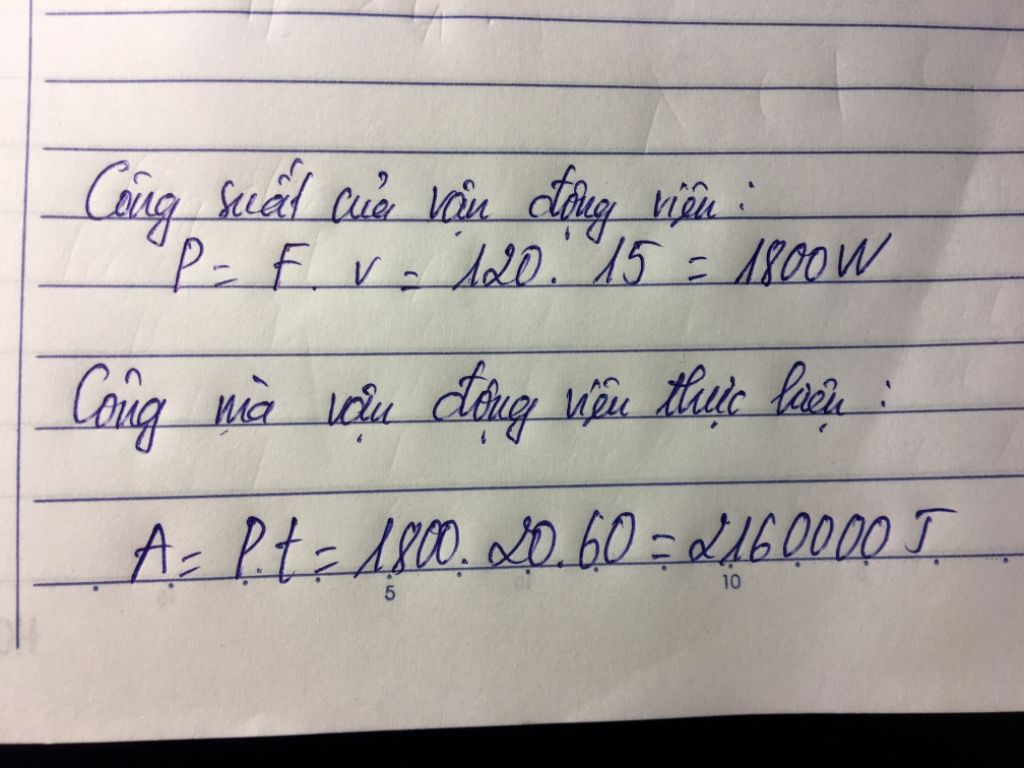 Công suất của vận động viên :
P = F. v = 120. 15 = 1800W
Công mà vận động viên thực hiện :
A = P.t = 1800. 20.60 = 2160000 J
5 10